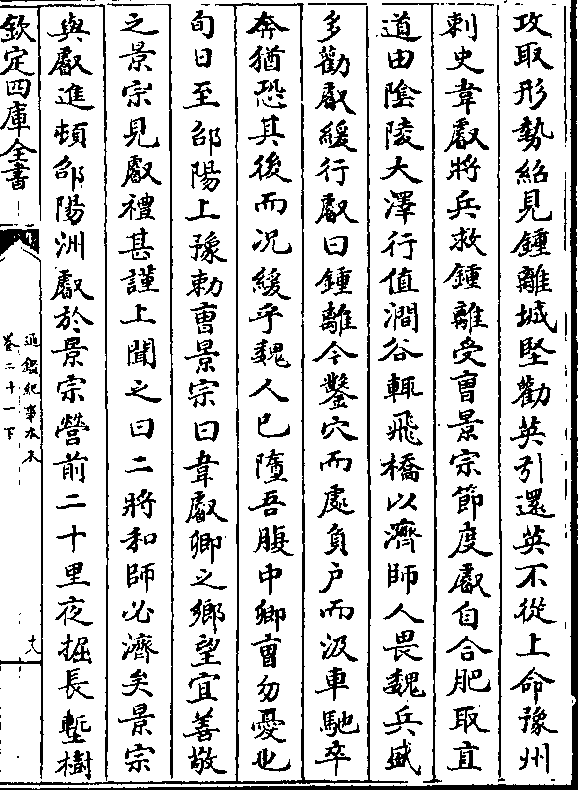 攻取形勢紹見鍾離城堅勸英引還英不從上命豫州
刺史韋叡將兵救鍾離受曹景宗節度叡自合肥取直
道由陰陵大澤行值澗谷輒飛橋以濟師人畏魏兵盛
多勸叡緩行叡曰鍾離今鑿穴而處負户而汲車馳卒
奔猶恐其後而况緩乎魏人已墮吾腹中卿曹勿憂也
旬日至邵陽上豫勅曹景宗曰韋叡卿之鄉望宜善敬
之景宗見叡禮甚謹上聞之曰二將和師必濟矣景宗
與叡進頓邵陽洲叡於景宗營前二十里夜掘長塹樹
欽定四庫全書
通鑑紀事本末
卷二十一下
十八